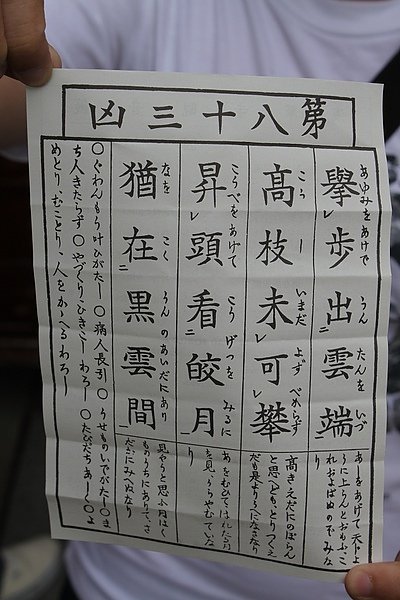 第八十三凶
擧レ歩出二雲端一
あゆみをあげて うん たんを いづ
高枝未レ可レ攀
こう しー いまだ よぢ べからず
昇レ頭看二皎月一
こうべをあげて こう げつを みるに
猶在二黒雲間一
なを こく うん のあいだにあり
あしをあげて天上よ
り
高きえだにのぼらん
と思へども、とりつくえ
だも是よりうへになきたり
あをむひてはれたる月
を見、うらやむていな
り
見やうと思ふ月はく
ものうちにありて、さ
だかにみへぬなり
〇ぐわんもう叶ひがたし〇病人長引〇うせものいでがたし〇ま
ち人きたらず〇やづくり、ひきこしわろし〇たびだちあしし〇よ
めとり、むことり、人をかゝへるわろし